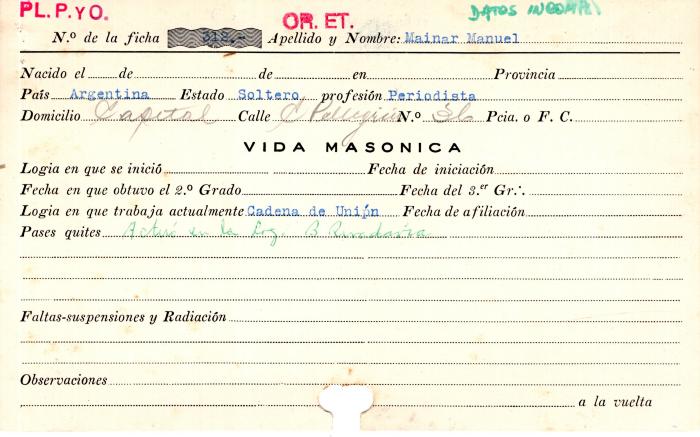 PL. P. y O. OR. ET. DATOS INCOMP.
N.º de la ficha 312.- Apellido y Nombre: Mainar Manuel
Nacido el de de en Provincia
País Argentina Estado Soltero profesión Periodista
Domicilio Capital Calle C Pellegrini N.º 36 Pcia. o F. C.
VIDA MASONICA
Logia en que se inició Fecha de iniciación
Fecha en que obtuvo el 2.º Grado Fecha del 3.er Gr∴
Logia en que trabaja actualmente Cadena de Unipn Fecha de afiliación
Pases quites Actuó en la Log. B Rivadavia
Faltas-suspensiones y Radiación
Observaciones
a la vuelta